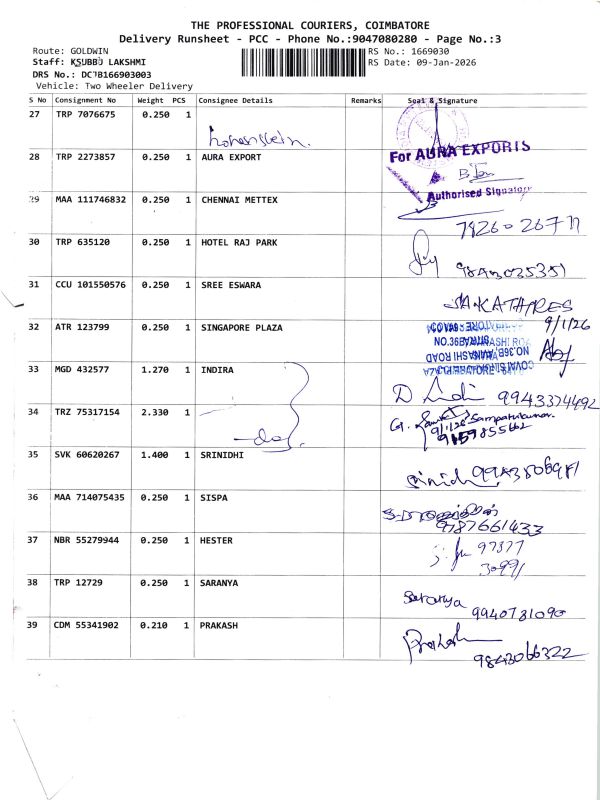 THE PROFESSIONAL COURIERS, COIMBATORE
Delivery Runsheet - PCC - Phone No.:9047080280 - Page No.:3
Route: GOLDWIN RS No.: 1669030
Staff: KSUBBU LAKSHMI RS Date: 09-Jan-2026
DRS No.: DC7B166903003
Vehicle: Two Wheeler Delivery
S No Consignment No Weight PCS Consignee Details Remarks Seal & Signature
27 TRP 7076675 0.250 1
28 TRP 2273857 0.250 1 AURA EXPORT For AURA EXPORTS
Authorised Signatory
29 MAA 111746832 0.250 1 CHENNAI METTEX
30 TRP 635120 0.250 1 HOTEL RAJ PARK
31 CCU 101550576 0.250 1 SREE ESWARA
32 ATR 123799 0.250 1 SINGAPORE PLAZA 9/1/26
33 MGD 432577 1.270 1 INDIRA 9943374492
34 TRZ 75317154 2.330 1 -do- Sampathkumar
9/1/26
9159855662
35 SVK 60620267 1.400 1 SRINIDHI
36 MAA 714075435 0.250 1 SISPA
9787661433
37 NBR 55279944 0.250 1 HESTER 97877
30991
38 TRP 12729 0.250 1 SARANYA Saranya
9940731090
39 CDM 55341902 0.210 1 PRAKASH Prakash
9843066322